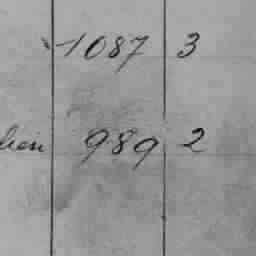 1087 3
989 2